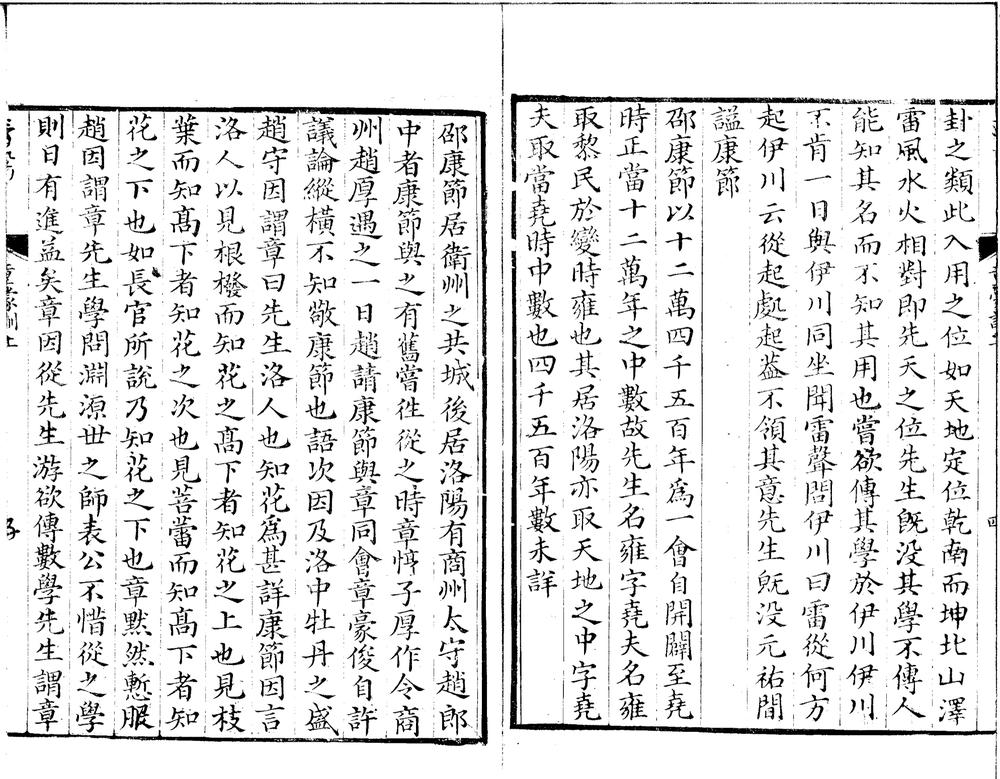 卦之類此入用之位如天地定位乾南而坤北山澤
雷風水火相對即先天之位先生旣没其學不傳人
能知其名而不知其用也嘗欲傳其學於伊川伊川
不肯一日與伊川同坐聞雷聲問伊川曰雷從何方
起伊川云從起處起葢不領其意先生旣没元祐間
謚康節
邵康節以十二萬四千五百年爲一會自開闢至堯
時正當十二萬年之中數故先生名雍字堯夫名雍
取黎民於變時雍也其居洛陽亦取天地之中字堯
夫取當堯時中數也四千五百年數未詳
四
邵康節居衛州之共城後居洛陽有商州太守趙郎
中者康節與之有舊嘗徃從之時章惇子厚作令商
州趙厚遇之一日趙請康節與章同會章豪俊自許
議論縱橫不知敬康節也語次因及洛中牡丹之盛
趙守因謂章曰先生洛人也知花爲甚詳康節因言
洛人以見根橃而知花之高下者知花之上也見枝
葉而知高下者知花之次也見菩蕾而知高下者知
花之下也如長官所說乃知花之下也章默然慙服
趙因謂章先生學問淵源世之師表公不惜從之學
則日有進益矣章因從先生游欲傳數學先生謂章